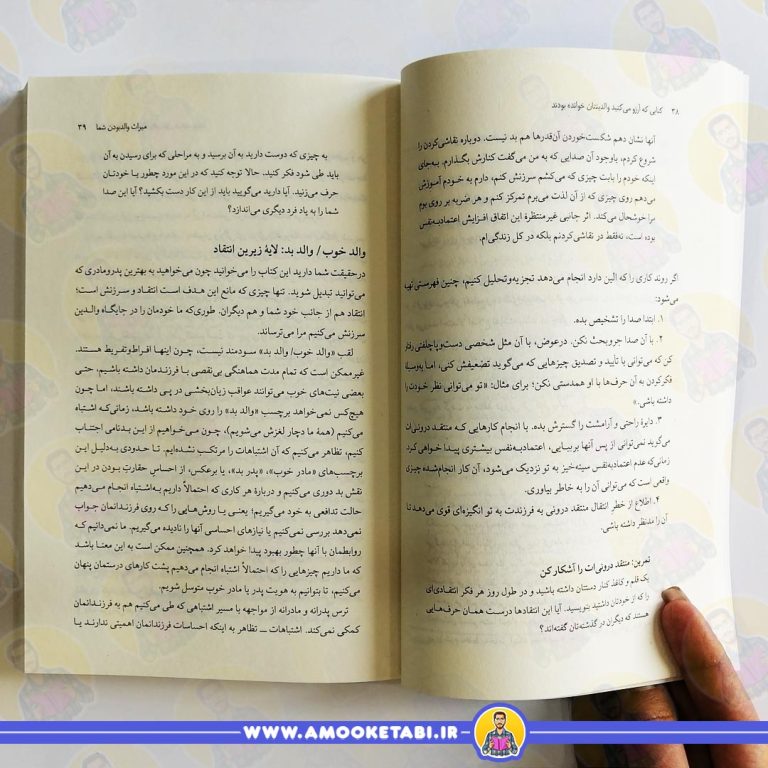 ۳۸ کتابی که آرزو می‌کنید والدینتان خوانده بودند
آنها نشان دهم شکست‌خوردن آن‌قدرها هم بد نیست. دوباره نقاشی‌کردن را
شروع کردم، باوجود آن صدایی که به من می‌گفت کنارش بگذارم. به‌جای
اینکه خودم را بابت چیزی که می‌کشم سرزنش کنم، دارم به خودم آموزش
می‌دهم روی چیزی که از آن لذت می‌برم تمرکز کنم و هر ضربه بر روی بوم
مرا خوشحال می‌کند. اثر جانبی غیرمنتظرهٔ این اتفاق افزایش اعتمادبه‌نفس
بوده است، نه‌فقط در نقاشی‌کردنم بلکه در کل زندگی‌ام.
اگر روند کاری را که الین دارد انجام می‌دهد تجزیه‌وتحلیل کنیم، چنین فهرستی تهیه
می‌شود:
۱. ابتدا صدا را تشخیص بده.
۲. با آن صدا جروبحث نکن. درعوض، با آن مثل شخصی دست‌وپاچلفتی رفتار
کن که می‌توانی با تأیید و تصدیق چیزهایی که می‌گوید تضعیفش کنی، اما به‌وسیلهٔ
فکرکردن به آن حرف‌ها با او همدستی نکن؛ برای مثال: «تو می‌توانی نظر خودت را
داشته باشی.»
۳. دایرهٔ راحتی و آرامشت را گسترش بده. با انجام کارهایی که منتقد درونی‌ات
می‌گوید نمی‌توانی از پس آنها بربیایی، اعتمادبه‌نفس بیشتری پیدا خواهی کرد.
زمانی‌که عدم اعتمادبه‌نفس سینه‌خیز به تو نزدیک می‌شود، آن کار انجام‌شده چیزی
واقعی است که می‌توانی آن را به خاطر بیاوری.
۴. اطلاع از خطرِ انتقال منتقد درونی به فرزندت به تو انگیزه‌ای قوی می‌دهد تا
آن را مدنظر داشته باشی.
تمرین: منتقد درونی‌ات را آشکار کن
یک قلم و کاغذ کنار دستتان داشته باشید و در طول روز هر فکر انتقادی‌ای
را که از خودتان داشتید بنویسید. آیا این انتقادها درست همان حرف‌هایی
هستند که دیگران در گذشته‌تان گفته‌اند؟
میراث والدبودن شما ۳۹
به چیزی که دوست دارید به آن برسید و به مراحلی که برای رسیدن به آن
باید طی شود فکر کنید. حالا توجه کنید که در این مورد چطور با خودتان
حرف می‌زنید. آیا دارید می‌گویید باید از این کار دست بکشید؟ آیا این صدا
شما را به یاد فرد دیگری می‌اندازد؟
والد خوب/ والد بد: لایهٔ زیرین انتقاد
درحقیقت شما دارید این کتاب را می‌خوانید چون می‌خواهید به بهترین پدرومادری که
می‌توانید تبدیل شوید. تنها چیزی که مانع این هدف است انتقاد و سرزنش است؛
انتقاد هم از جانب خود شما و هم دیگران. طوری‌که ما خودمان را در جایگاه والدین
سرزنش می‌کنیم مرا می‌ترساند.
لقب «والد خوب/ والد بد» سودمند نیست، چون اینها افراط‌وتفریط هستند.
غیرممکن است که تمام مدت هماهنگی بی‌نقصی با فرزندمان داشته باشیم، حتی
بعضی نیت‌های خوب می‌توانند عواقب زیان‌بخشی در پی داشته باشند، اما چون
هیچ‌کس نمی‌خواهد برچسب «والد بد» را روی خود داشته باشد، زمانی‌که اشتباه
می‌کنیم (همهٔ ما دچار لغزش می‌شویم)، چون می‌خواهیم از این بدنامی اجتناب
کنیم، تظاهر می‌کنیم که آن اشتباهات را مرتکب نشده‌ایم. تا حدودی به‌دلیل این
برچسب‌های «مادر خوب»، «پدر بد»، یا برعکس، از احساس حقارتِ بودن در این
نقش بد دوری می‌کنیم و دربارهٔ هر کاری که احتمالاً داریم به‌اشتباه انجام می‌دهیم
حالت تدافعی به خود می‌گیریم؛ یعنی یا روش‌هایی را که روی فرزندانمان جواب
نمی‌دهد بررسی نمی‌کنیم یا نیازهای احساسی آنها را نادیده می‌گیریم. ما نمی‌دانیم که
روابطمان با آنها چطور بهبود پیدا خواهد کرد. همچنین ممکن است به این معنا باشد
که ما داریم چیزهایی را که احتمالاً اشتباه انجام می‌دهیم پشت کارهای درستمان پنهان
می‌کنیم، تا بتوانیم به هویت پدر یا مادر خوب متوسل شویم.
ترس پدرانه و مادرانه از مواجهه با مسیر اشتباهی که طی می‌کنیم هم به فرزندانمان
کمکی نمی‌کند. اشتباهات ــ تظاهر به اینکه احساسات فرزندانمان اهمیتی ندارند یا
WWW.AMOOKETABI.IR